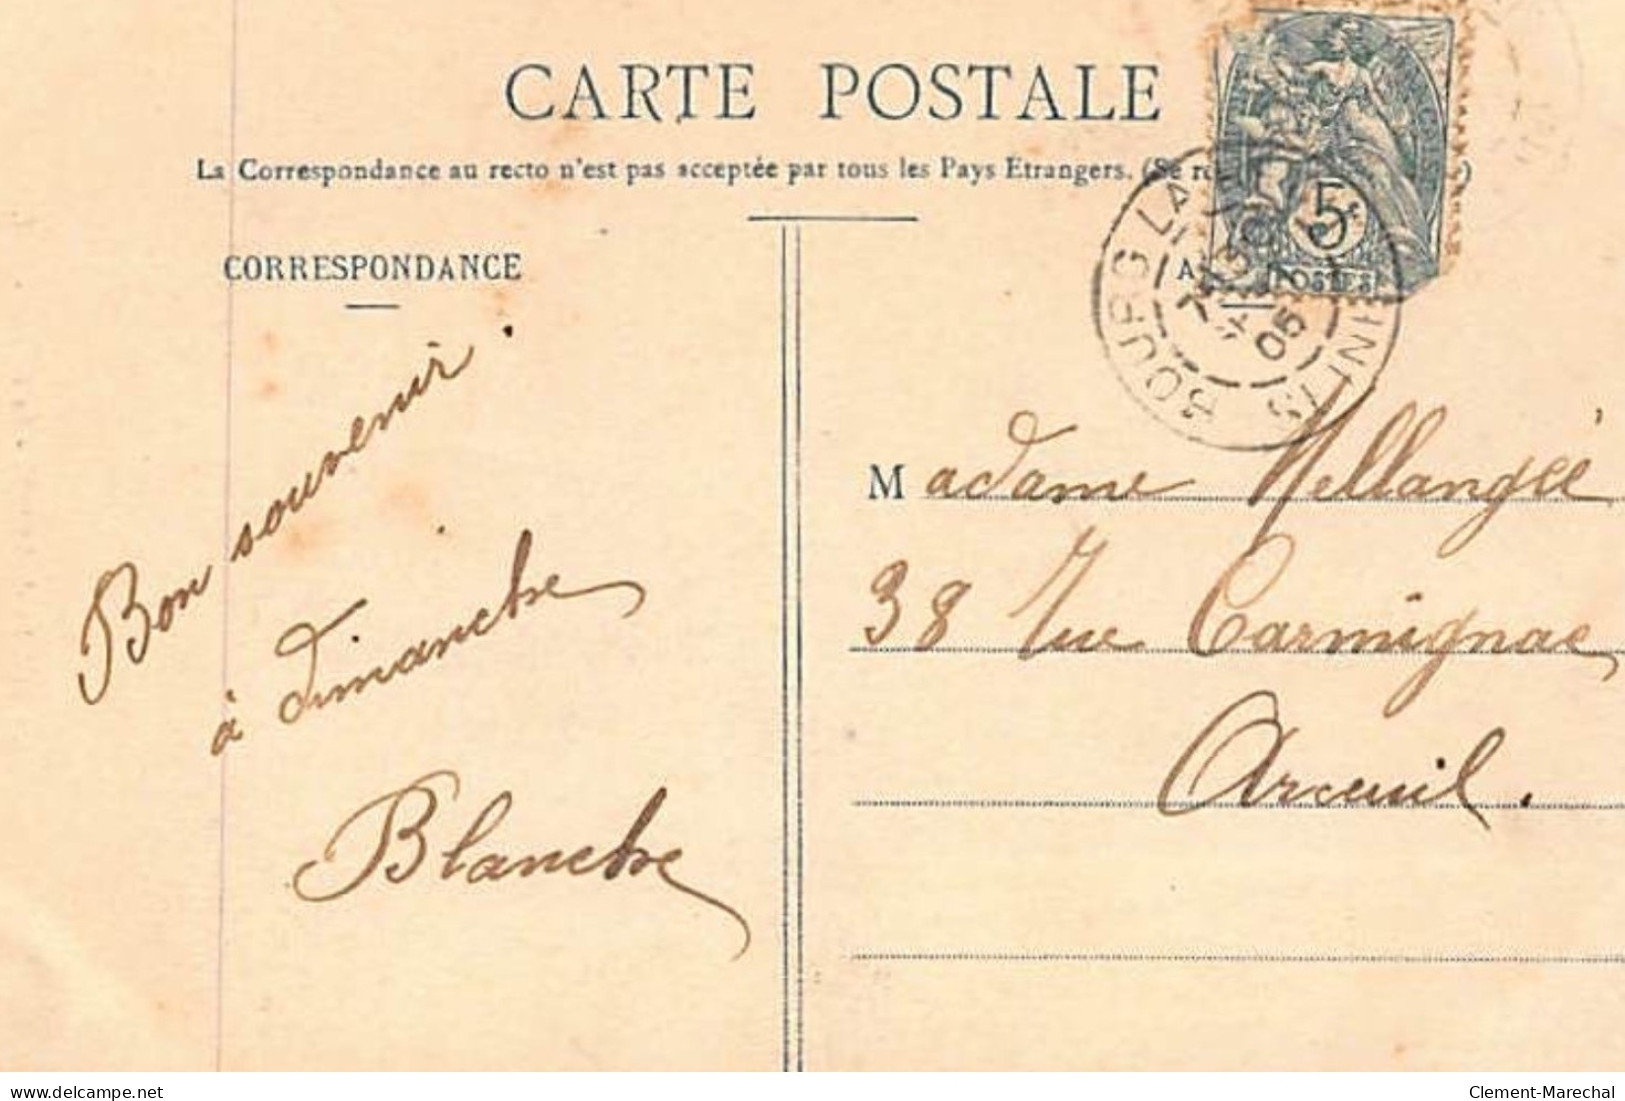 CARTE POSTALE
La Correspondance au recto n'est pas acceptée par tous les Pays Etrangers. (Se
CORRESPONDANCE
BOURG LA
05
5c
POSTES
Bon souvenir.
à dimanche
Blanche
Madame Mellangié
38 rue Carmignac
Arcueil.
www.delcampe.net
Clement-Marechal